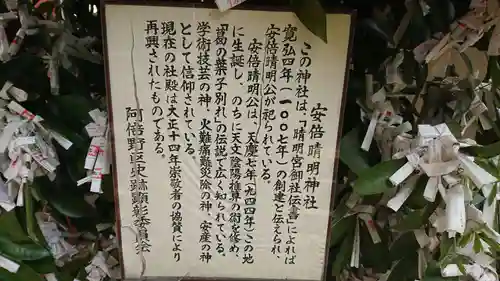 安倍晴明神社
この神社は、「晴明宮御社伝書」によれば
寛弘四年(一〇〇七年)の創建と伝えられ、
安倍晴明公を祀る。
安倍晴明公は、天慶七年(九四四年)この地
に生誕し、のちに天文陰陽推算の術を修め、
「葛の葉子別れ」の伝説で広く知られる。
学術技芸の神、火難痛難災除の神、安産の神
として信仰されている。
現在の社殿は大正十四年崇敬者の協賛により
再興されたものである。
阿倍野区史跡顕彰委員会